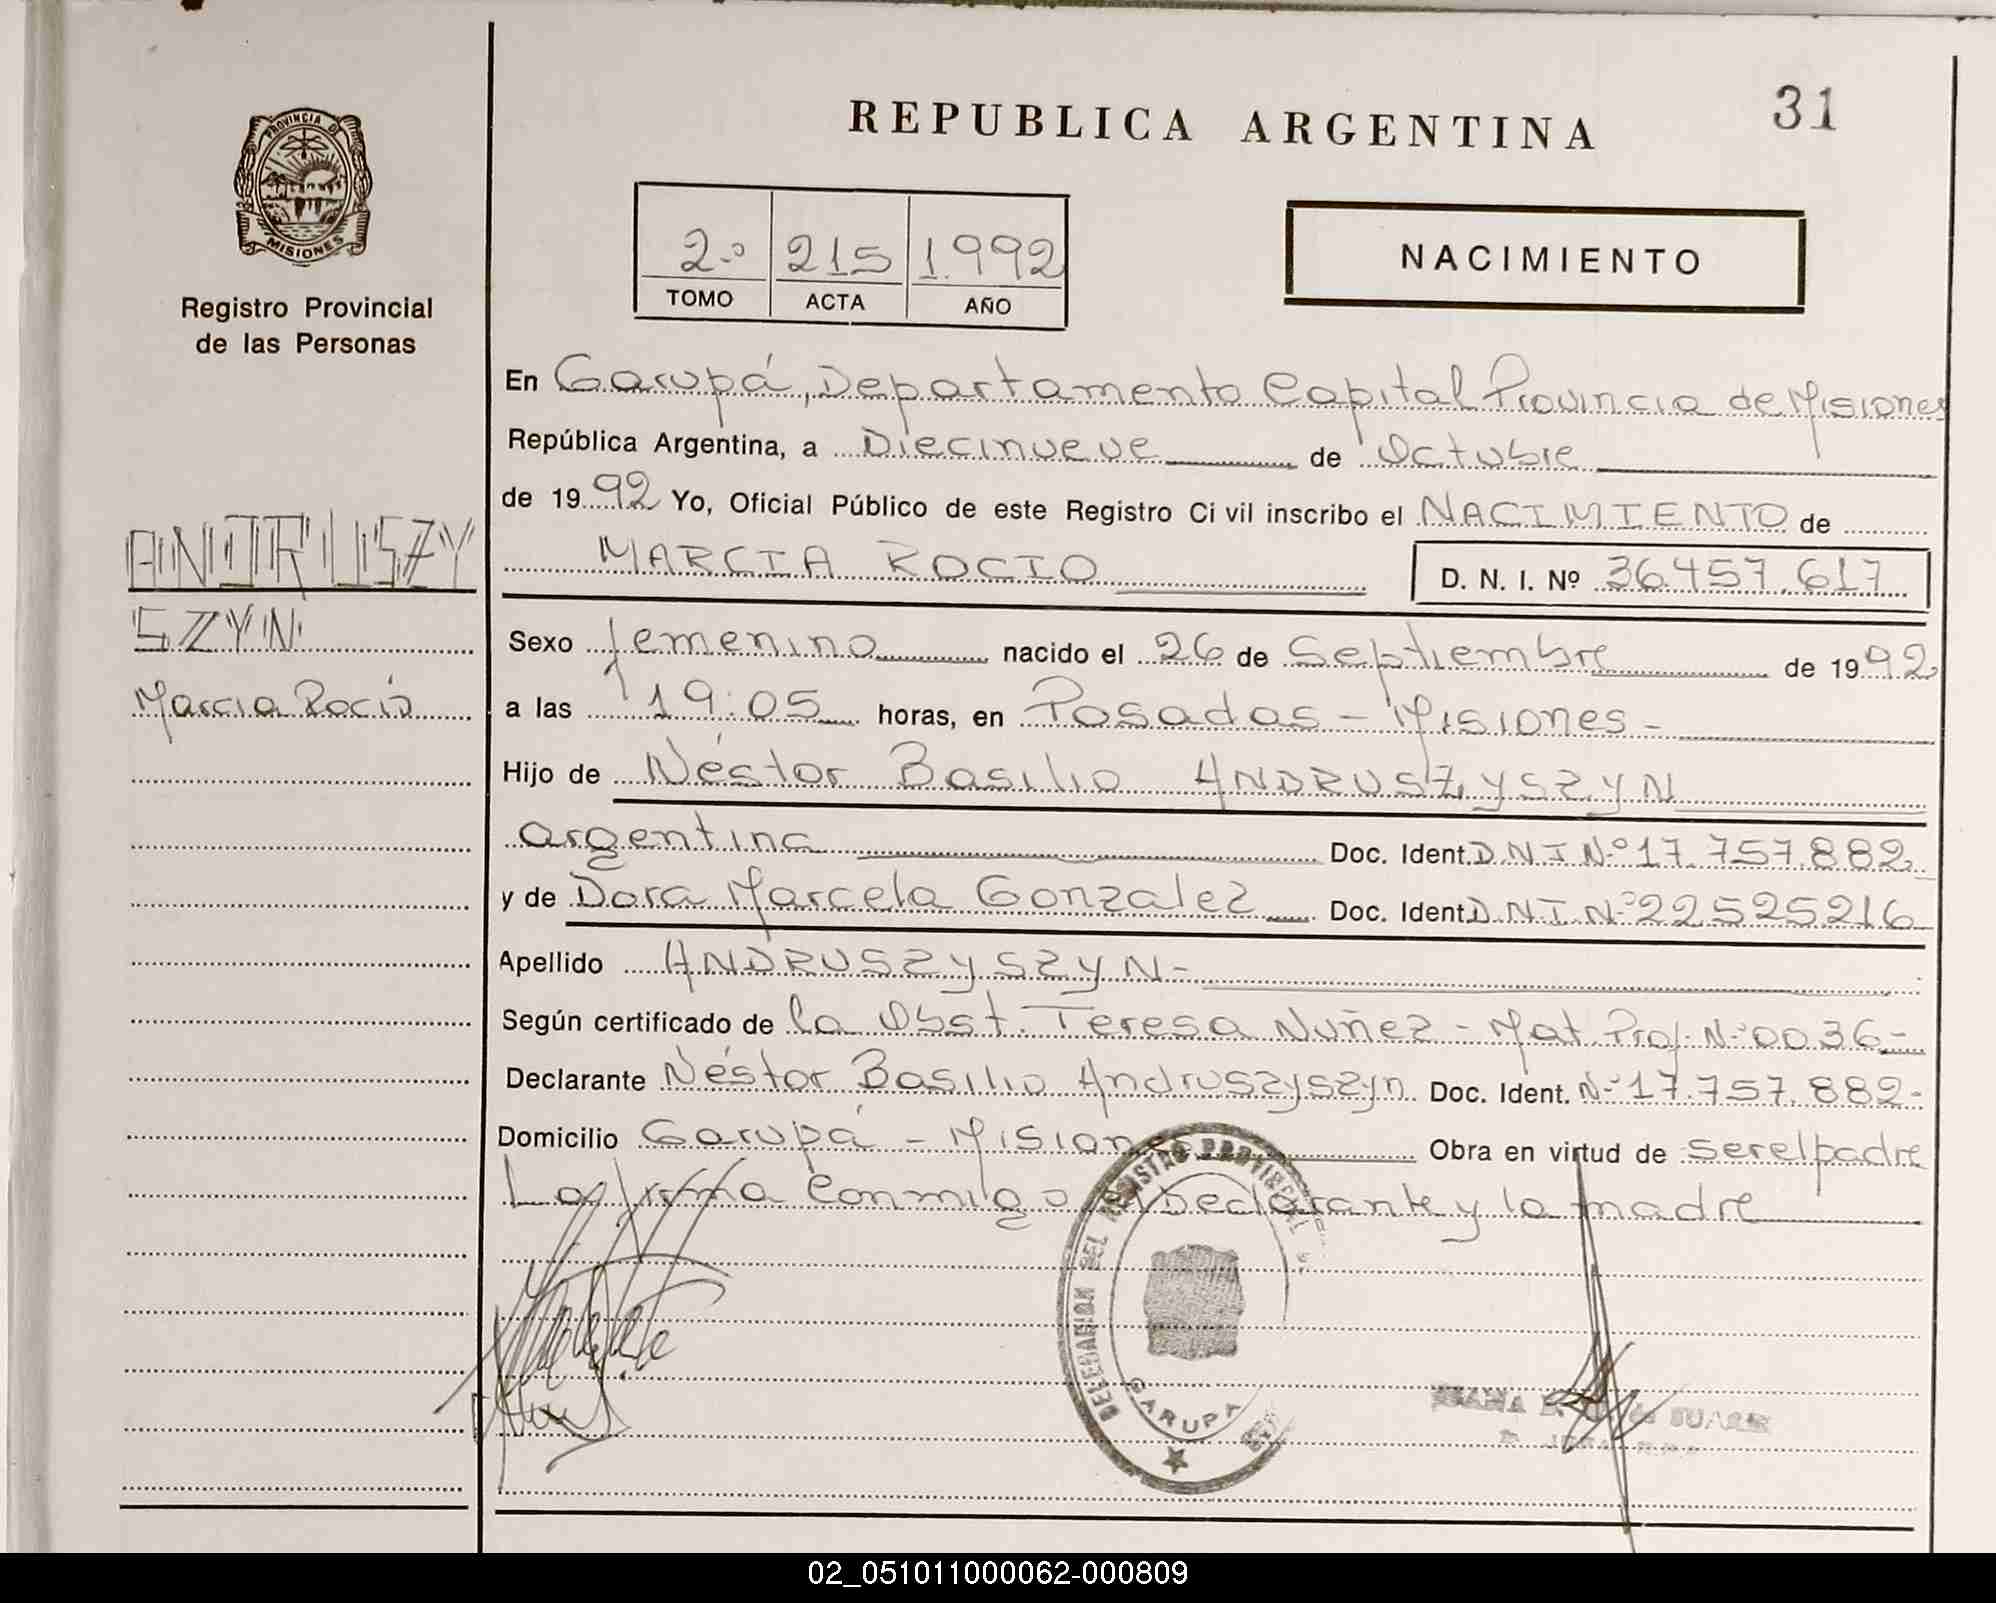 REPUBLICA ARGENTINA
31
PROVINCIA DE
MISIONES
Registro Provincial
de las Personas
2º 215 1.992
TOMO ACTA AÑO
NACIMIENTO
En Garupá, Departamento Capital Provincia de Misiones
República Argentina, a Diecinueve de Octubre
de 1992 Yo, Oficial Público de este Registro Civil inscribo el NACIMIENTO de
MARCIA ROCIO D. N. I. Nº 36.457.617
ANDRUSZY
SZYN
Marcia Rocio
Sexo femenino nacido el 26 de Septiembre de 1992
a las 19:05 horas, en Posadas - Misiones -
Hijo de Néstor Basilio ANDRUSZYSZYN
argentina Doc. Ident. DNI Nº 17.757.882
y de Dora Marcela Gonzalez Doc. Ident. DNI Nº 22525216
Apellido ANDRUSZYSZYN -
Según certificado de la Obst. Teresa Nuñez - Mat. Prof. Nº 0036 -
Declarante Néstor Basilio Andruszyszyn Doc. Ident. Nº 17.757.882 -
Domicilio Garupá - Misiones Obra en virtud de ser el padre
La firma conmigo Declarante y la madre
DELEGACION DEL REGISTRO PROVINCIAL
GARUPA
de SUAREZ
02_051011000062-000809